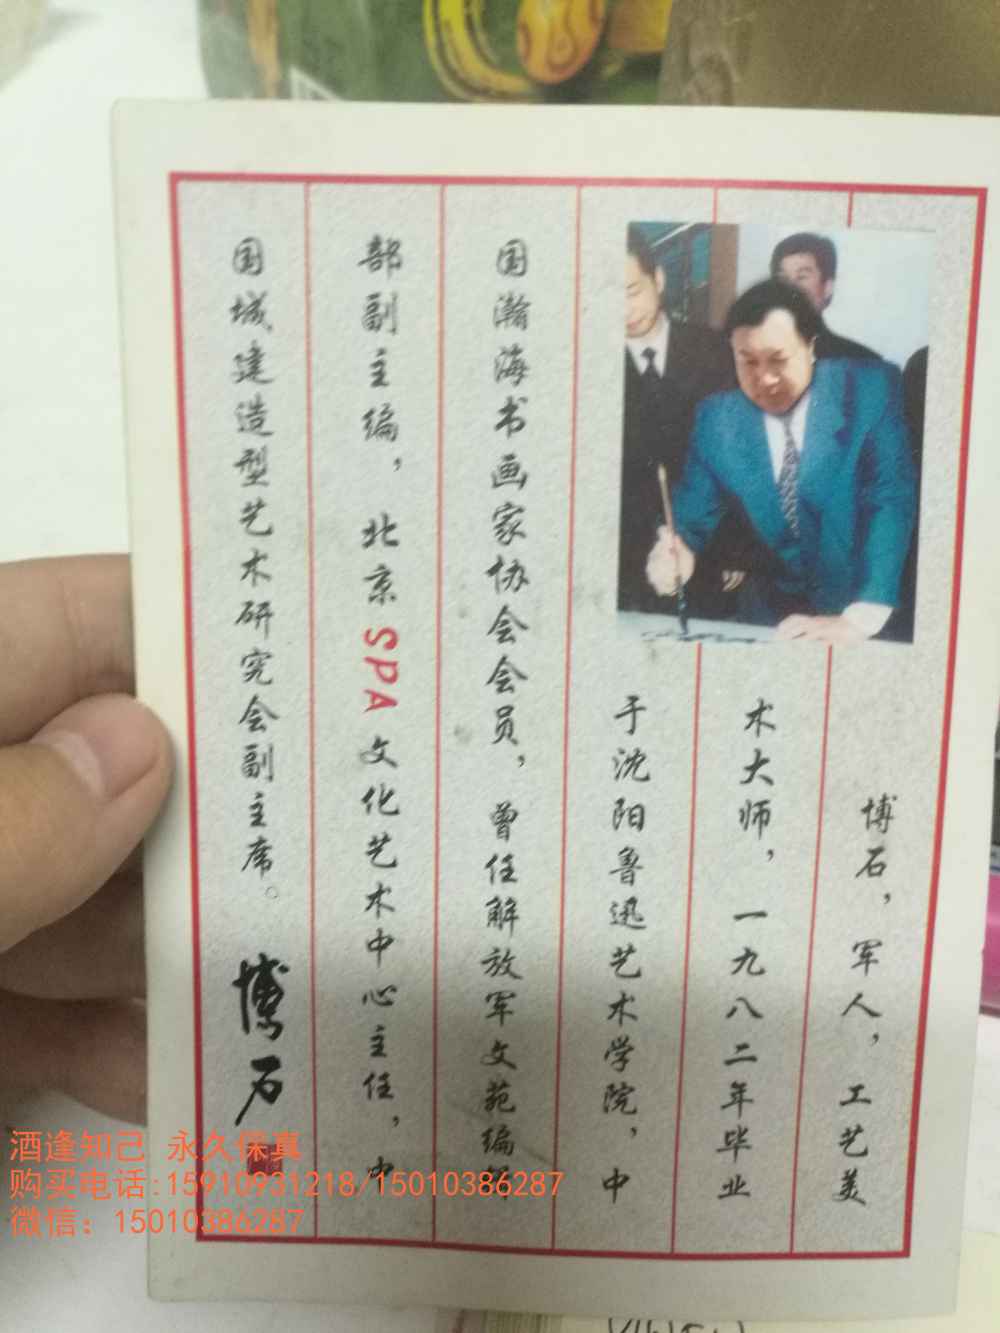 博石，军人，工艺美
术大师，一九八二年毕业
于沈阳鲁迅艺术学院，中
国瀚海书画家协会会员，曾任解放军文苑编辑
部副主编，北京SPA文化艺术中心主任，中
国城建造型艺术研究会副主席。
博石
酒逢知己 永久保真
购买电话:15910931218/15010386287
微信：15010386287